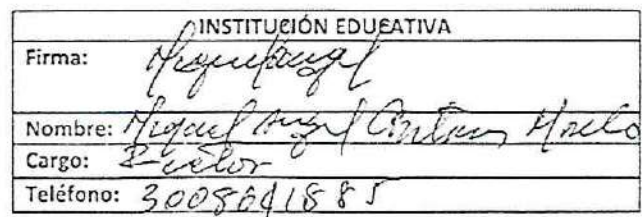 INSTITUCIÓN EDUCATIVA
Firma: Miguel Angel
Nombre: Miguel Angel
Cargo: Rector
Teléfono: 3008641885